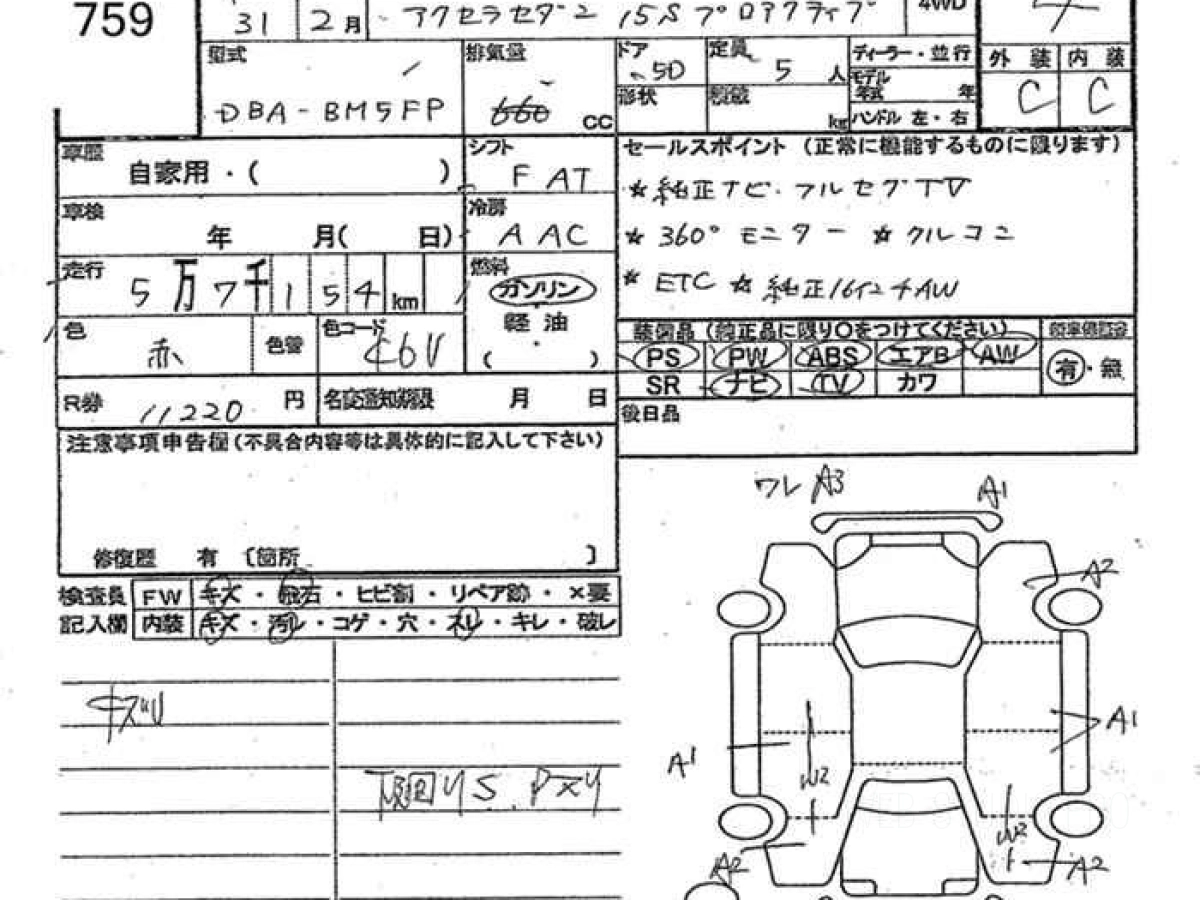 759
31 2月 アクセラセダン 15S プロアクティブ 4WD
型式 排気量 ドア 5D 定員 5人 ディーラー・並行 外装 内装
モデル年式 年
DBA-BM5FP 660 cc 形状 積載 kg ハンドル 左・右 C C
車歴 自家用・( ) シフト FAT セールスポイント (正常に機能するものに限ります)
★純正ナビ・フルセグTV
車検 年 月( 日) 冷房 AAC ★360°モニター ★クルコン
走行 5万7千154km 燃料 ガソリン ★ETC ★純正16インチAW
軽油
( )
色 赤 色替 色コード C6U 装備品 (純正品に限り○をつけてください)
PS PW ABS エアB AW 有・無
SR ナビ TV カワ
R券 11220 円 名変通知期限 月 日 後日品
注意事項申告欄(不具合内容等は具体的に記入して下さい)
修復歴 有 〔箇所 〕
検査員 FW キズ・飛石・ヒビ割・リペア跡・×要
記入欄 内装 キズ・汚レ・コゲ・穴・スレ・キレ・破レ
キズU
ワレ A3 A1
A2
A1
A1
W2
W2
A2
A2